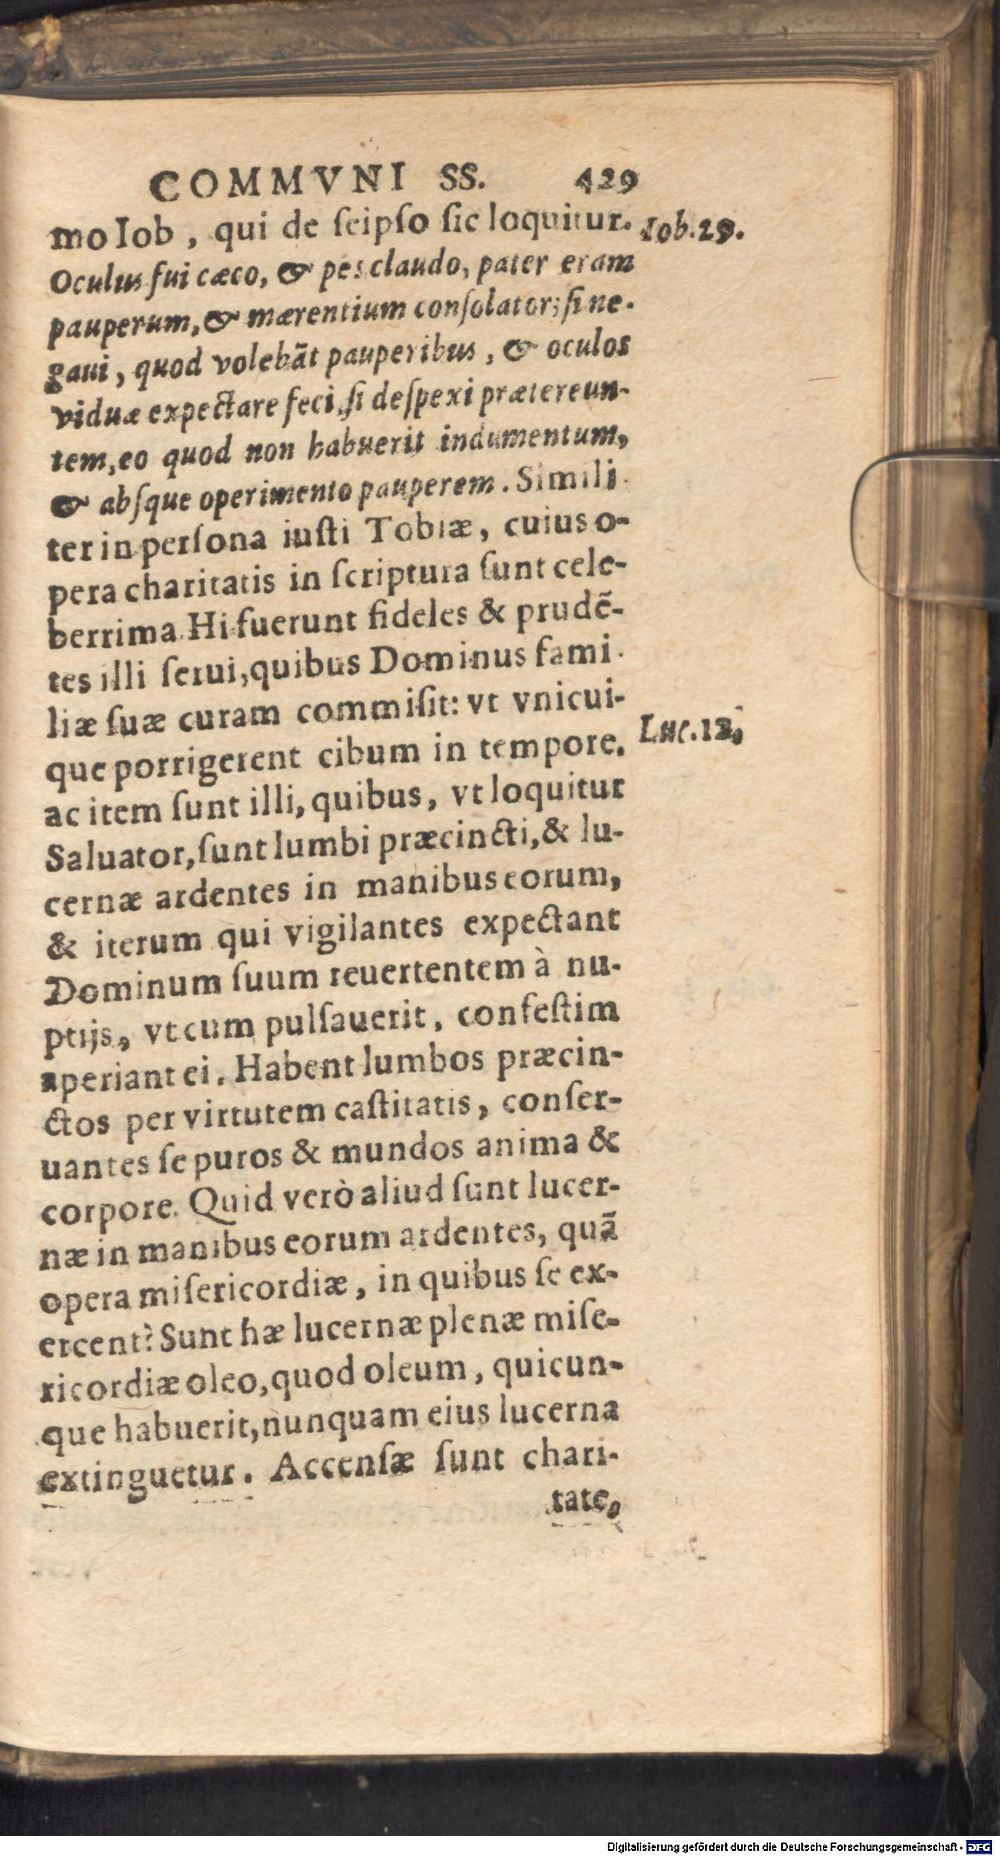 COMMVNI SS. 429
mo Iob, qui de ſeipſo ſic loquitur. Iob.29.
Oculus fui cæco, & pes claudo, pater eram
pauperum, & mærentium conſolator; ſi ne-
gaui, quod volebāt pauperibus, & oculos
viduæ expectare feci, ſi deſpexi prætereun-
tem, eo quod non habuerit indumentum,
& abſque operimento pauperem. Simili-
ter in perſona iuſti Tobiæ, cuius o-
pera charitatis in ſcriptura ſunt cele-
berrima. Hi fuerunt fideles & prudē-
tes illi ſerui, quibus Dominus fami-
liæ ſuæ curam commiſit: vt vnicui-
que porrigerent cibum in tempore. Luc.12.
ac item ſunt illi, quibus, vt loquitur
Saluator, ſunt lumbi præcincti, & lu-
cernæ ardentes in manibus eorum,
& iterum qui vigilantes expectant
Dominum ſuum reuertentem à nu-
ptijs, vt cum pulſauerit, confeſtim
aperiant ei. Habent lumbos præcin-
ctos per virtutem caſtitatis, conſer-
uantes ſe puros & mundos anima &
corpore. Quid verò aliud ſunt lucer-
næ in manibus eorum ardentes, quā
opera miſericordiæ, in quibus ſe ex-
ercent? Sunt hæ lucernæ plenæ miſe-
ricordiæ oleo, quod oleum, quicun-
que habuerit, nunquam eius lucerna
extinguetur. Accenſæ ſunt chari-
tate,
Digitalisierung gefördert durch die Deutsche Forschungsgemeinschaft - DFG